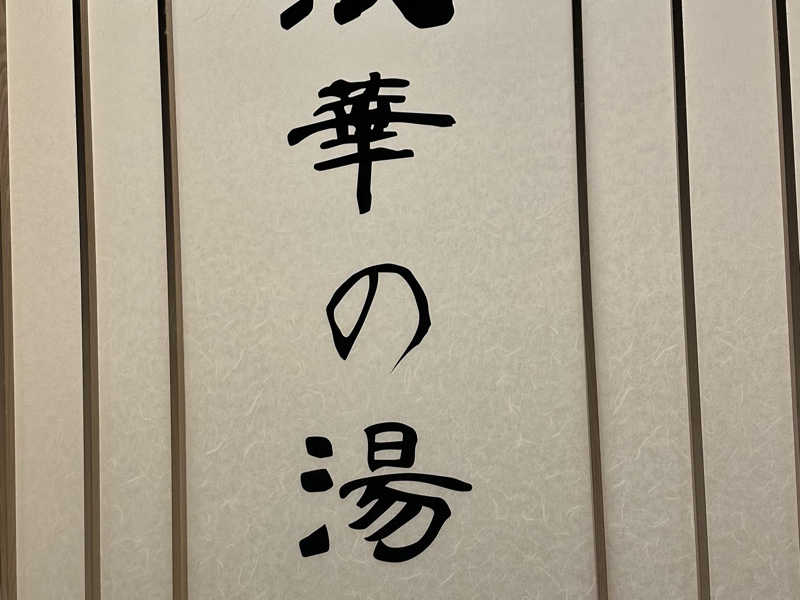 華の湯